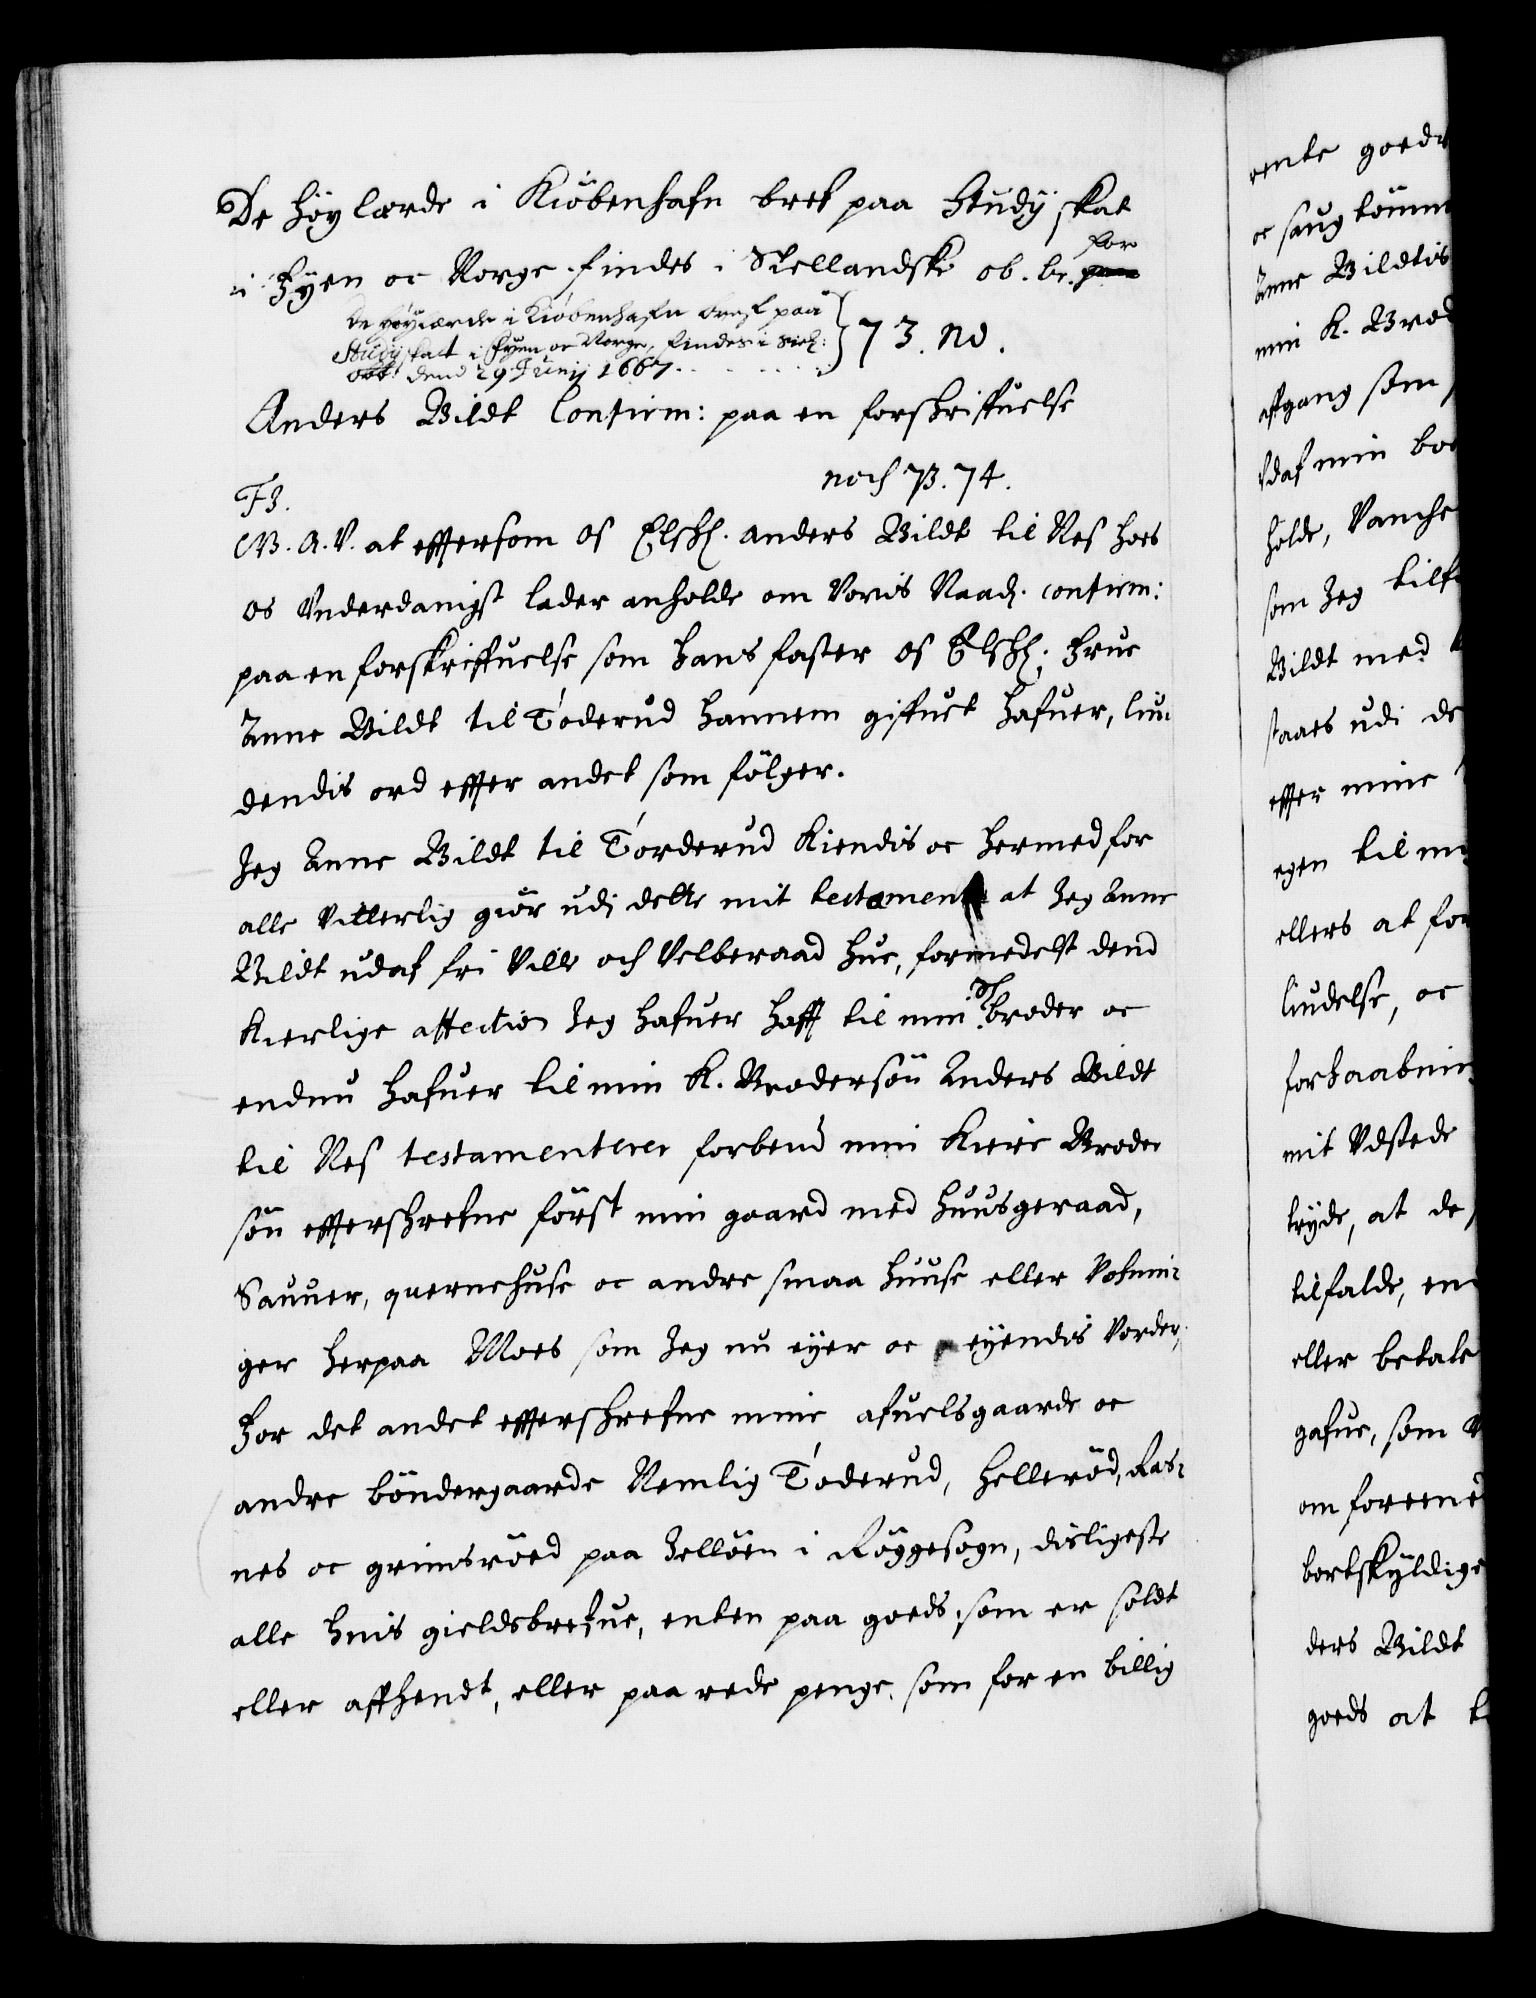 De Høylærde i Kiøbenhafn bref paa Studij skat
i Fyen oc Norge findes i Siellandske ob. br. for
De høylærde i Kiøbenhafn bref paa
Studij skatt i Fyen oc Norge, findes i Siel:
dend 29 Junij 1667.
73. No.
Anders Bildt Confirm: paa en forskriffuelse
noch 73. 74.
F3.
G. A. V. at effersom os Elskl. Anders Bildt til Nes hoes
os Underdanigst lader anholde om Voris Naad. confirm:
paa en forskriffuelse som hans faster os Elskl: Frue
Anne Bildt til Toderud hannem giffuet hafuer, liu-
dendis ord effer andet som følger.
Jeg Anne Bildt til Torderud Kiendis oc hermed for
alle Vitterlig giør udi dette mit testament at Jeg Anne
Bildt udaf fri Villie och Velberaad hue, formedelst dend
Kierlige affection Jeg hafuer hafft til min S. broder oc
endnu hafuer til min K. Brodersøn Anders Bildt
til Nes testamenterer forbemt min Kiere Broder
søn effterschrefne først min gaard med huusgeraad,
Sauuer, quernehuse oc andre smaa huuse eller Vofnin-
ger herpaa Moes som Jeg nu eyer oc eyendis Vorder,
For det andet effterschrefne mine afuelsgaarde oc
andre bøndergaarde Nemlig Toderud, Hellerød, Ras-
nes oc grimsrøed paa Jelløen i Røggesogn, disligeste
alle huis gieldsbrefue, enten paa goeds, som er soldt
eller affhendt, eller paa rede penge, som for en billig
rente goeds
oc saug tømm
Anne Bildtis
min K. Brod
affgang som
Udaf min bo
holde, Vanche
som Jeg tilf
Bildt med
staaes udi de
effter mine
egen til m
ellers at for
liudelse, oc
forhaabnin
mit Vdstede
tryde, at de
tilfalde, en
eller betale
gafue, som
om foreened
bortskyldige
ders Bildt
goeds at